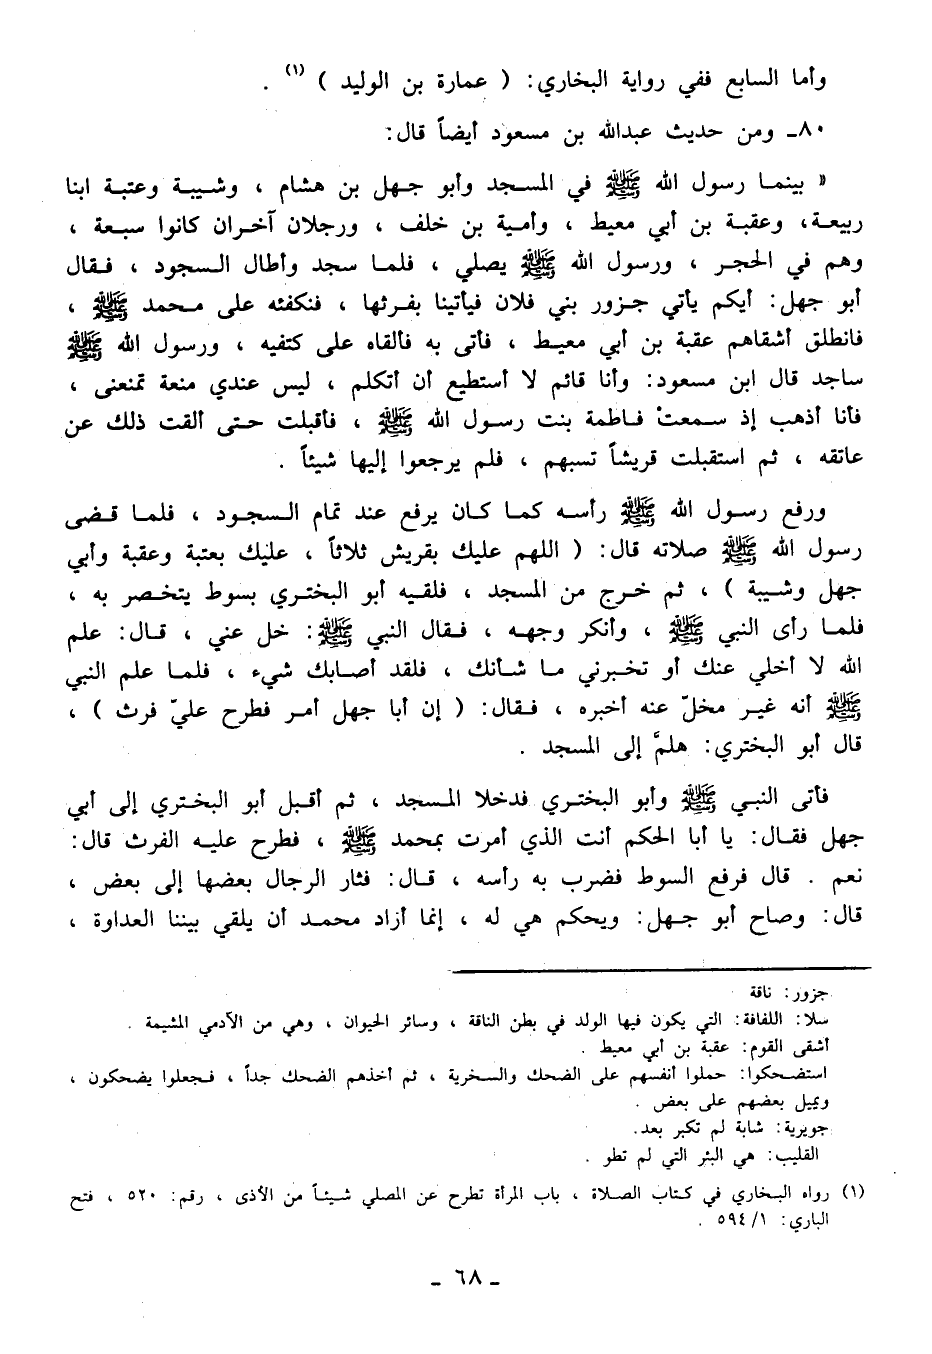 وأما السابع ففي رواية البخاري: ( عمارة بن الوليد ) (١) .
٨٠ـ ومن حديث عبدالله بن مسعود أيضاً قال:
« بينما رسول الله ﷺ في المسجد وأبو جهل بن هشام ، وشيبة وعتبة ابنا
ربيعة، وعقبة بن أبي معيط ، وأمية بن خلف ، ورجلان آخران كانوا سبعة ،
وهم في الحجر ، ورسول الله ﷺ يصلي ، فلما سجد وأطال السجود ، فقال
أبو جهل: أيكم يأتي جزور بني فلان فيأتينا بفرثها ، فنكفئه على محمد ﷺ ،
فانطلق أشقاهم عقبة بن أبي معيط ، فأتى به فألقاه على كتفيه ، ورسول الله ﷺ
ساجد قال ابن مسعود: وأنا قائم لا أستطيع أن أتكلم ، ليس عندي منعة تمنعنى ،
فأنا أذهب إذ سمعتْ فاطمة بنت رسول الله ﷺ ، فأقبلت حتى ألقت ذلك عن
عاتقه ، ثم استقبلت قريشاً تسبهم ، فلم يرجعوا إليها شيئاً .
ورفع رسول الله ﷺ رأسه كما كان يرفع عند تمام السجود ، فلما قضى
رسول الله ﷺ صلاته قال: ( اللهم عليك بقريش ثلاثاً ، عليك بعتبة وعقبة وأبي
جهل وشيبة ) ، ثم خرج من المسجد ، فلقيه أبو البختري بسوط يتخصر به ،
فلما رأى النبي ﷺ ، وأنكر وجهه ، فقال النبي ﷺ: خل عني ، قال: علم
الله لا أخلي عنك أو تخبرني ما شأنك ، فلقد أصابك شيء ، فلما علم النبي
ﷺ أنه غير مخلّ عنه أخبره ، فقال: ( إن أبا جهل أمر فطرح عليّ فرث ) ،
قال أبو البختري: هلمَّ إلى المسجد .
فأتى النبي ﷺ وأبو البختري فدخلا المسجد ، ثم أقبل أبو البختري إلى أبي
جهل فقال: يا أبا الحكم أنت الذي أمرت بمحمد ﷺ ، فطرح عليه الفرث قال:
نعم . قال فرفع السوط فضرب به رأسه ، قال: فثار الرجال بعضها إلى بعض ،
قال: وصاح أبو جهل: ويحكم هي له ، إنما أزاد محمد أن يلقي بيننا العداوة ،
جزور: ناقة
سلا: اللفافة: التي يكون فيها الولد في بطن الناقة ، وسائر الحيوان ، وهي من الآدمي المشيمة .
أشقى القوم: عقبة بن أبي معيط .
استضحكوا: حملوا أنفسهم على الضحك والسخرية ، ثم أخذهم الضحك جداً ، فجعلوا يضحكون ،
ويميل بعضهم على بعض .
جويرية: شابة لم تكبر بعد.
القليب: هي البئر التي لم تطو .
(١) رواه البخاري في كتاب الصلاة ، باب المرأة تطرح عن المصلي شيئاً من الأذى ، رقم: ٥٢٠ ، فتح
الباري: ٥٩٤/١ .
ـ ٦٨ ـ